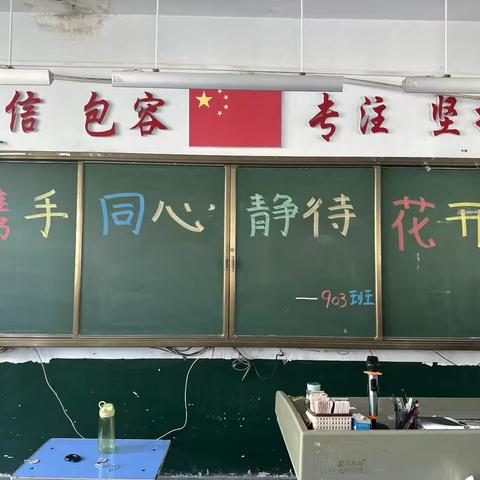 信 包容 专注 坚
携手 同心 静待 花开
—903班